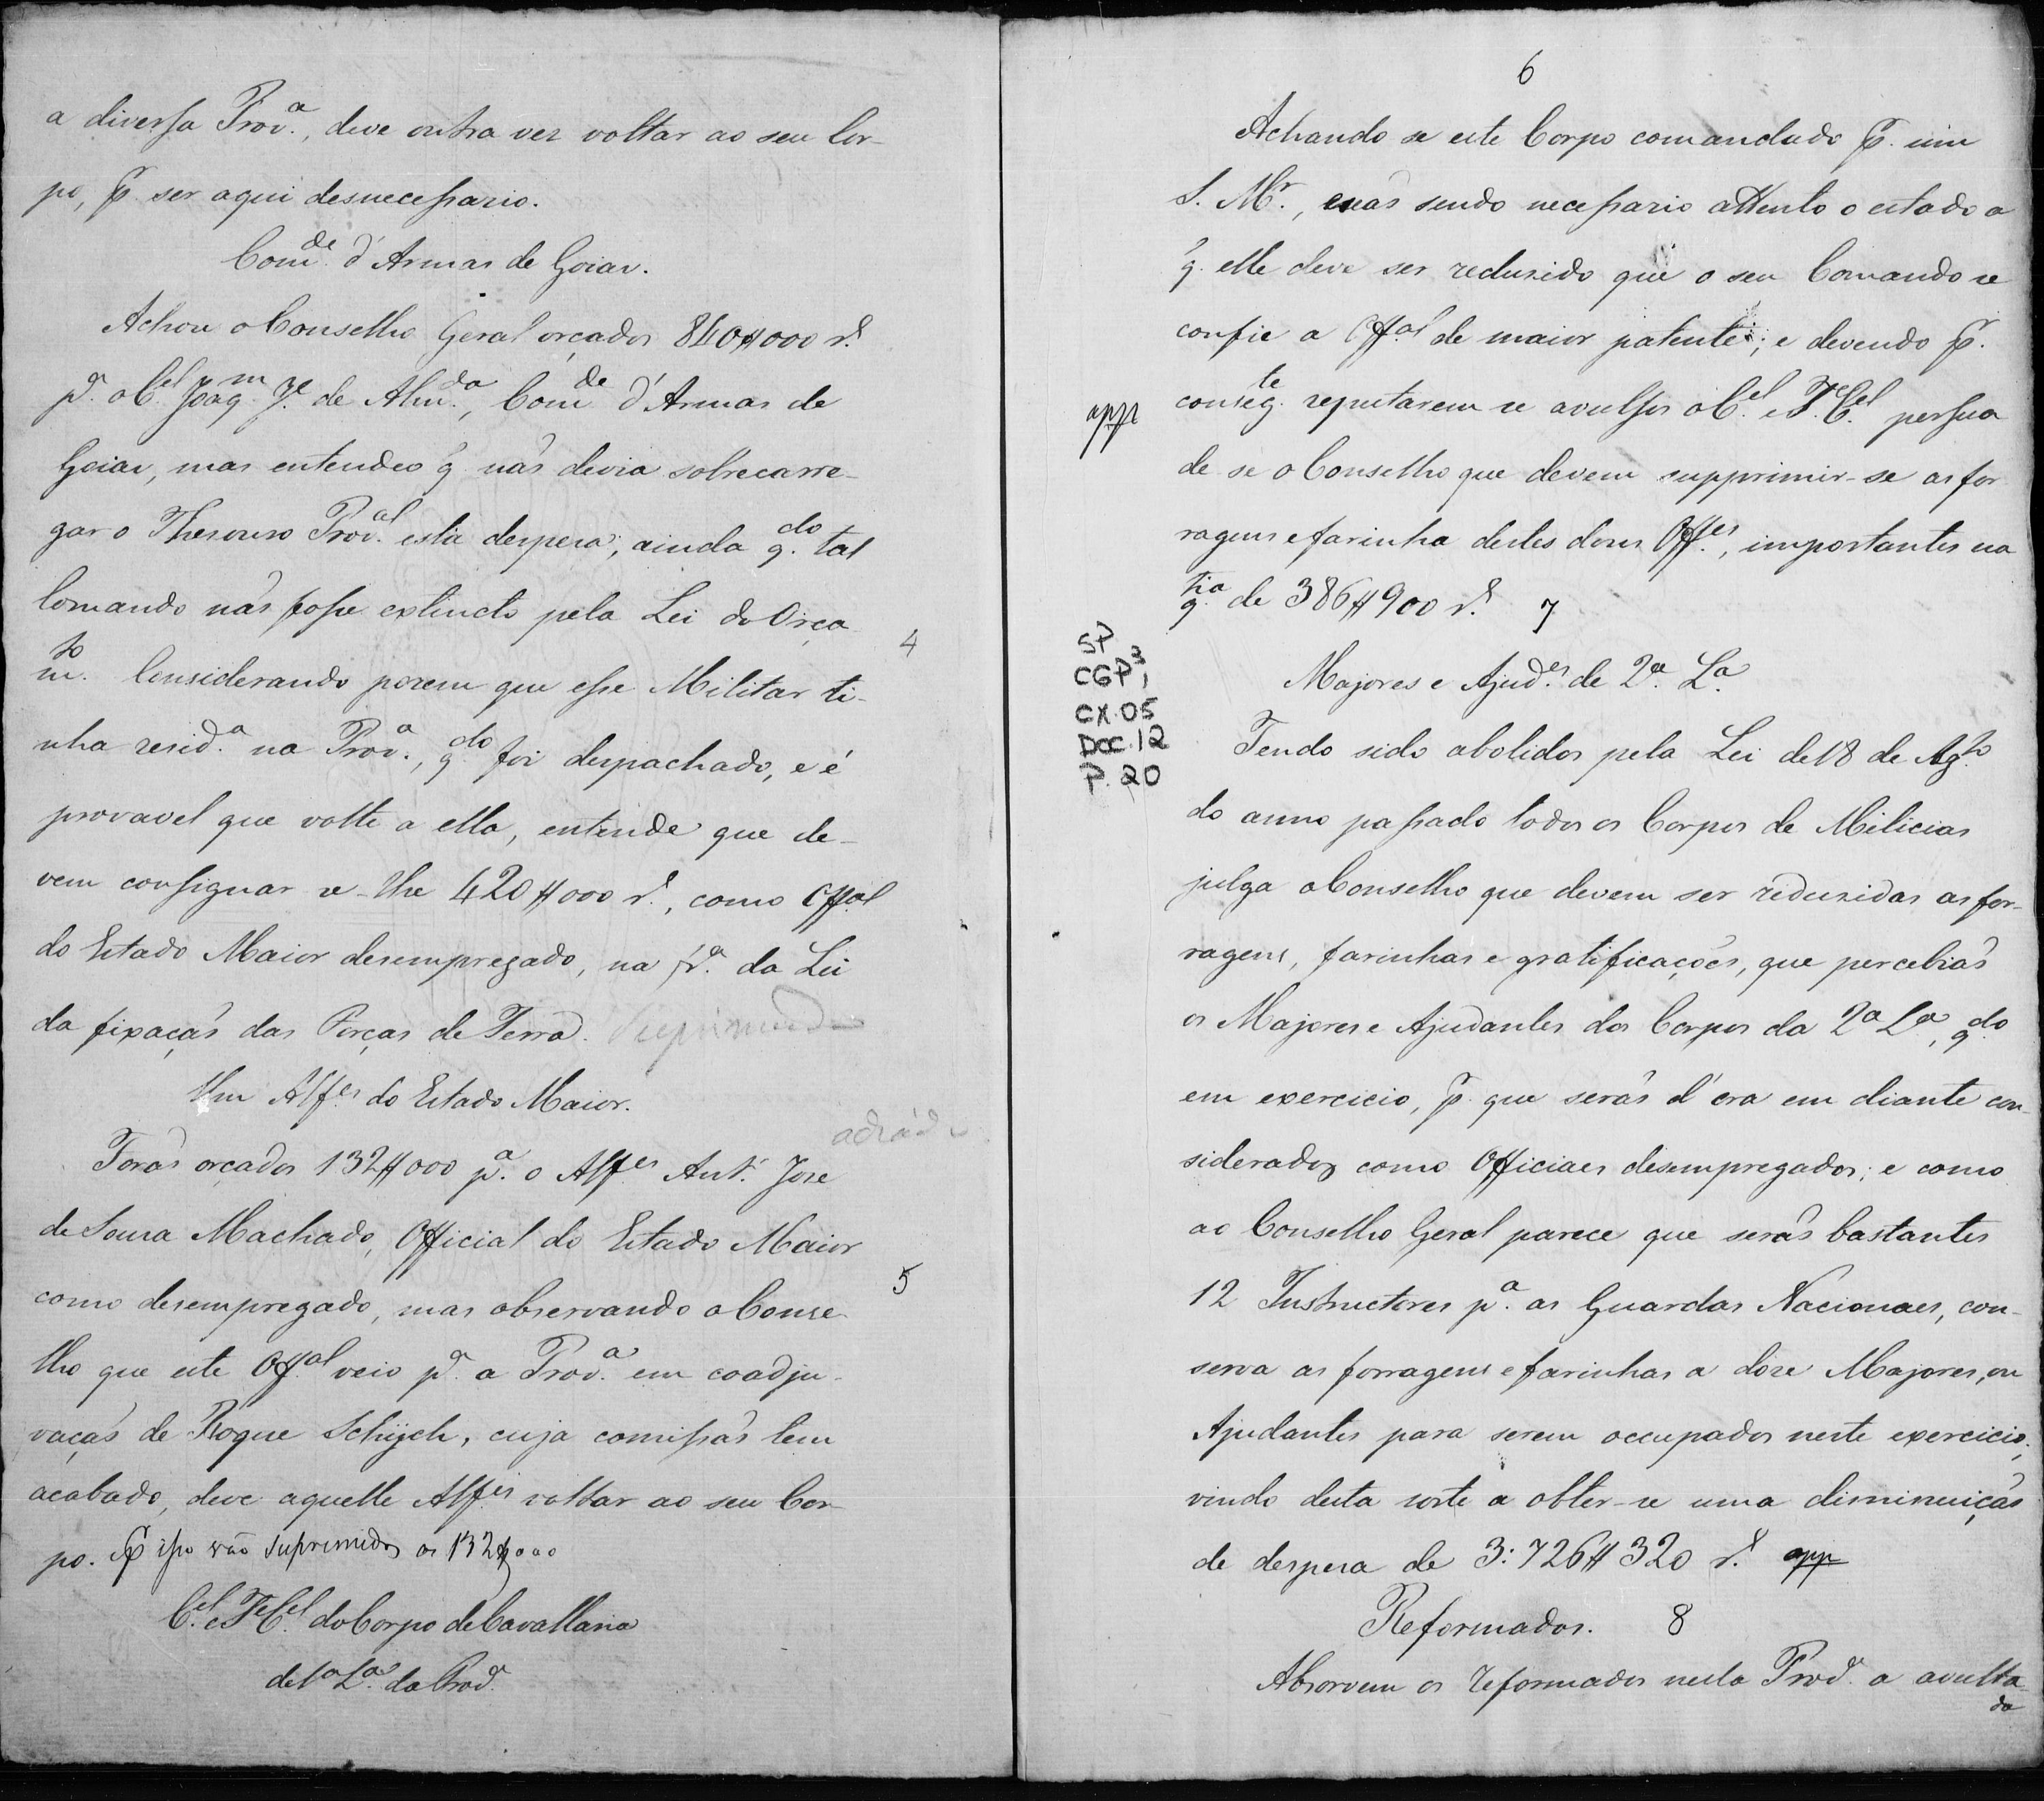 a diversa Prov.ª, deve outra vez voltar ao seu Cor-
po, p. ser aqui desnecessario.
Com.de d'Armas de Goiaz.
Achou o Conselho Geral orçados 840$000 r.s
p.ª o C.el Joaq.m J.e de Alm.da, Com.de d'Armas de
Goiaz, mas entendeo q̃ não devia sobrecarre-
gar o Thesouro Prov.al esta despeza, ainda q.do tal
Comando não fosse extincto pela Lei do Orça
m.to Considerando porem que esse Militar ti-
4
nha resid.ª na Prov.ª, q.do foi despachado, e é
provavel que volte a ella, entende que de-
vem consignar se-lhe 420$000 r.s, como Off.al
do Estado Maior desempregado, na fr.ª da Lei
da fixação das Forças de Terra. Suprimido
Um Alf.es do Estado Maior.
adiado
Forão orçados 132$000 p.ª o Alf.es Ant.º Jose
de Souza Machado, Official do Estado Maior
como desempregado, mas observando o Conse
5
lho que este Off.al veio p.ª a Prov.ª em coadju-
vação de Roque Schüch, cuja comissão tem
acabado, deve aquelle Alf.es voltar ao seu Cor-
po. P isso vão suprimidos os 132$000
C.el e T.e C.el do Corpo de Cavallaria
de 1ª L.ª da Prov.ª
6
Achando se este Corpo comandado p. um
S. M.r, e não sendo necessario attento o estado a
q̃. elle deve ser reduzido que o seu Comando se
confie a Off.al de maior patente; e devendo p.
conseg.te reputarem se avulsos o C.el e T.e C.el persua
app
de se o Conselho que devem supprimir-se as for
ragens e farinha destes dous Off.es, importantes na
q.tia de 386$900 r.s 7
SP
CGP, 3
CX. 05
DOC. 12
P. 20
Majores e Ajud.es de 2ª L.ª
Tendo sido abolidos pela Lei de 18 de Ag.to
do anno passado todos os Corpos de Milicias
julga o Conselho que devem ser reduzidas as for-
ragens, farinhas e gratificações, que percebião
os Majores e Ajudantes dos Corpos da 2ª L.ª, q.do
em exercicio, p. que serão d'ora em diante con-
siderados como Officiaes desempregados; e como
ao Conselho Geral parece que serão bastantes
12 Instructores p.ª as Guardas Nacionaes, con-
serva as forragens e farinhas a doze Majores, ou
Ajudantes para serem occupados neste exercicio;
vindo desta sorte a obter-se uma diminuição
de despeza de 3:726$320 r.s app
Reformados. 8
Absorvem os reformados nesta Prov.ª a avulta-
da